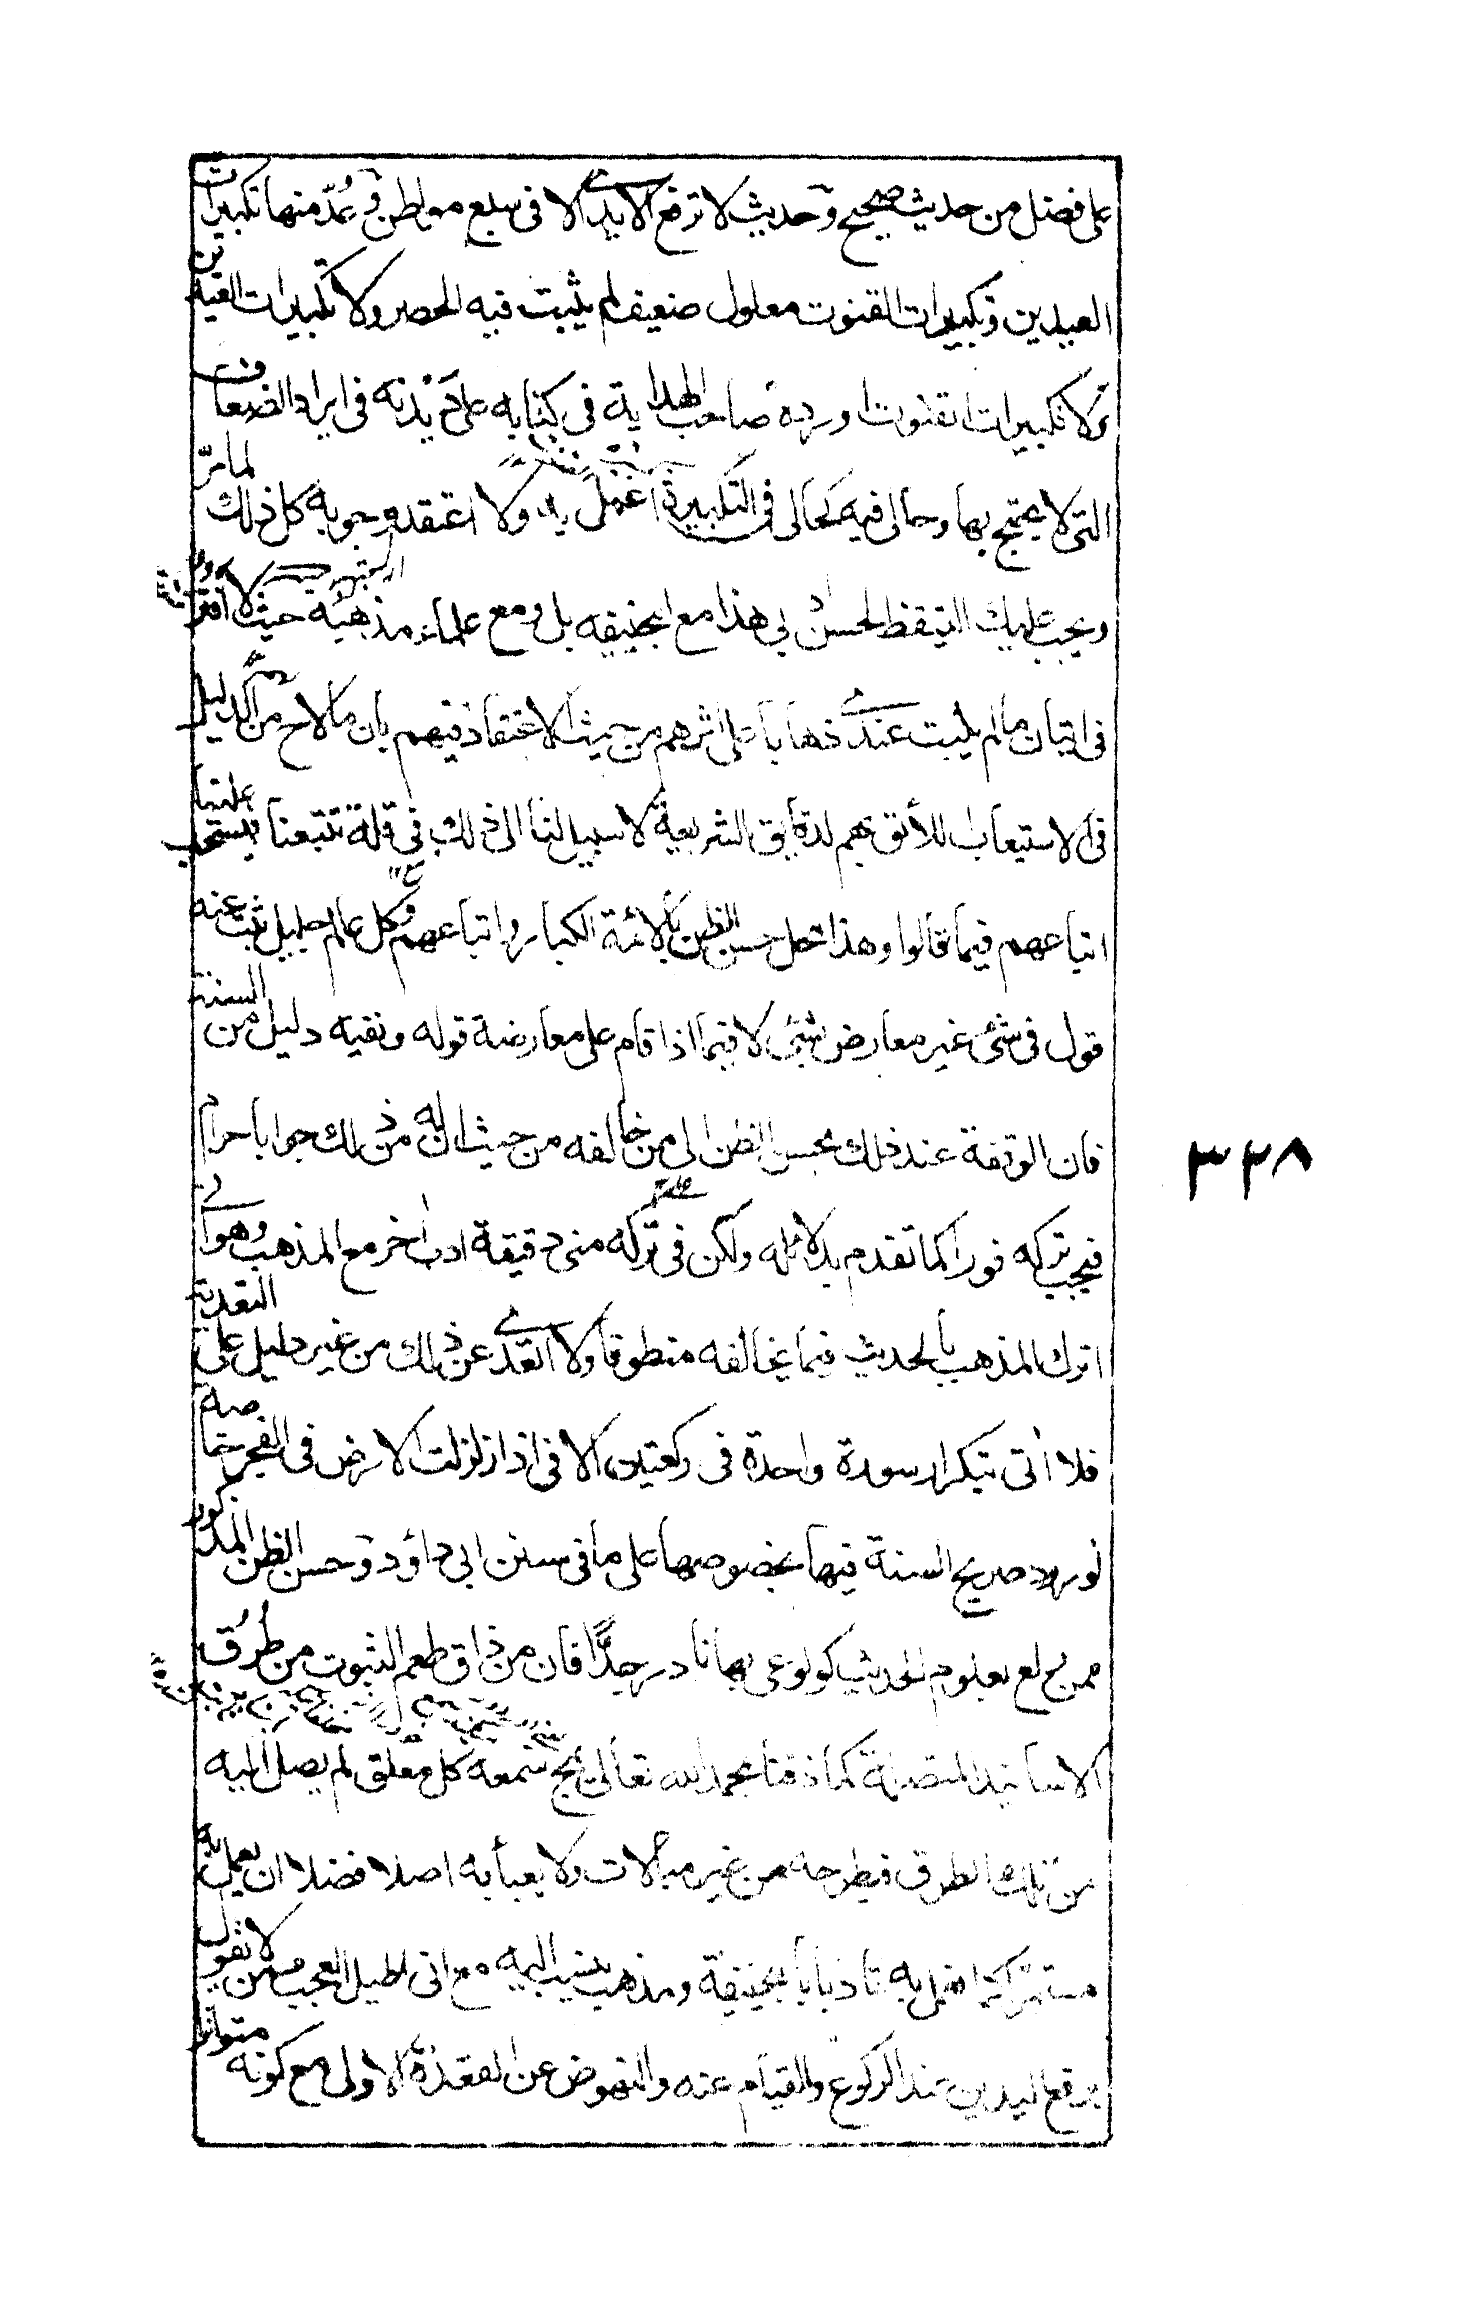 على فضل من حديث صحيح وحديث لا ترفع الايدى الا فى سبع مواطن وعد منها تكبيرات
العيدين وتكبيرات القنوت معلول ضعيف لم يثبت فيه الحصر ولا تكبيرات
ولا تكبيرات القنوت اورده صاحب الهداية فى كتابه على ديدنه فى ايراد الضعاف
التى لا يحتج بها وحالى فيه كحالى فى التكبيرة اعمل به ولا اعتقد وجوبه كل ذلك لما مر
ويجب عليك التيقظ لحسن ادبى هذا مع ابيحنيفه بل ومع علماء مذهبه حيث لا
فى اتيان ما لم يثبت عندى ذهابا على اثرهم من حيث الاعتقاد فيهم بان ما لاح من الدليل
فى الاستيعاب اللائق بهم لدقايق الشريعة لا سبيل لنا الى ذلك فى قلة تتبعنا فيستحب علينا
اتباعهم فيما قالوا وهذا محل حسن الظن بالائمة الكبار واتباعهم وكل عالم جليل ثبت عنه
قول فى شئ غير معارض بشئ لا فيما اذا قام على معارضة قوله ونفيه دليل من السنة
فان الوقفة عند ذلك بحسن الظن الى من خالفه من حيث ان له من ذلك جوابا حرام
فيجب تركه فورا كما تقدم بدلائله ولكن فى تركه منى دقيقة ادب اخر مع المذهب وهو انى
اترك المذهب بالحديث فيما يخالفه منطوقا ولا اتعدى عن ذلك من غير دليل على التعدية
فلا اتى بتكرار سورة واحدة فى ركعتين الا فى اذا زلزلت الارض فى الفجر خاصة
لورود صريح السنة فيها بخصوصها على ما فى سنن ابى داؤد وحسن الظن المذكور
ممن يولع بعلوم الحديث كولوعى بها نادر جدا فان من ذاق طعم الثبوت من طرق
الاسانيد المتصلة كما ذقنا بحمد الله تعالى يمج سمعه كل معلق لم يصل اليه
من تلك الطرق فيطرحه من غير مبالات ولا يعبأ به اصلا فضلا ان يعمل به
مستمرا كما اعمل به تادبا بابيحنيفة ومذهب ينسب اليه مع انى اطيل العجب ممن لا يقول
برفع اليدين عند الركوع والقيام عنه والنهوض عن القعدة الاولى مع كونه متواترا
٣٢٨